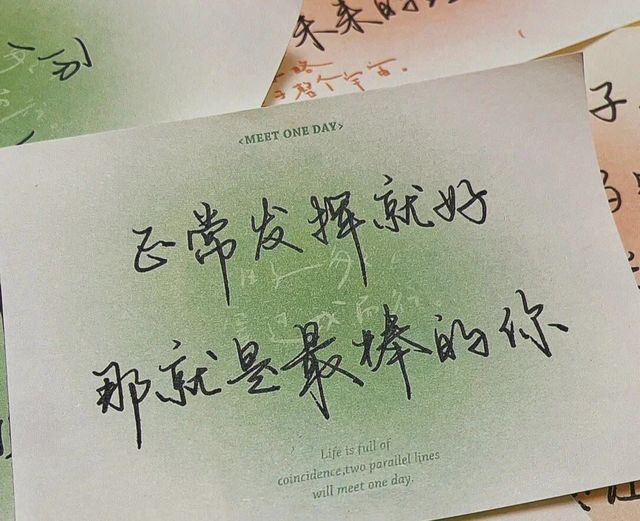 份
未来的
整个宇宙.
子
<MEET ONE DAY>
正常发挥就好
那就是最棒的你
Life is full of
coincidence,two parallel lines
will meet one day.